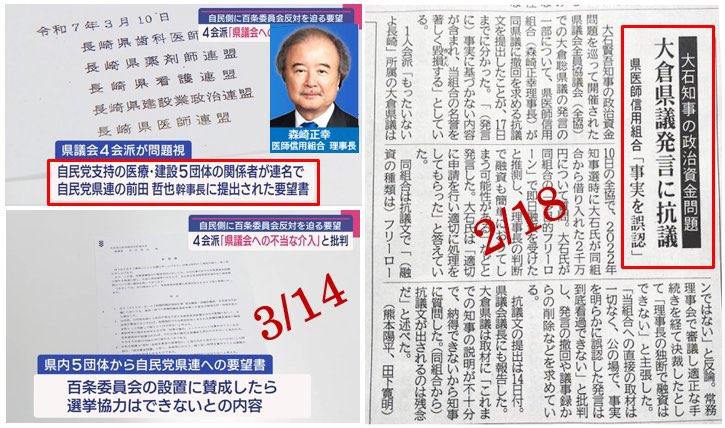 自民党側に百条委員会反対を迫る要望
4会派「県議会への
令和7年3月10日
長崎県歯科医師連盟
長崎県薬剤師連盟
長崎県看護連盟
長崎県建設業政治連盟
長崎県医師連盟
森崎正幸
医師信用組合 理事長
県議会4会派が問題視
自民党支持の医療・建設5団体の関係者が連名で
自民党県連の前田 哲也幹事長に提出された要望書
自民党側に百条委員会反対を迫る要望
4会派「県議会への不当な介入」と批判
3/14
県内5団体から自民党県連への要望書
百条委員会の設置に賛成したら
選挙協力はできないとの内容
大石知事の政治資金問題
大倉県議発言に抗議
県医師信用組合「事実を誤認」
2/18
大石賢吾知事の政治資金
問題を巡って開催された
県議会全員協議会(全協)
での大倉聡県議の発言の
一部について、県医師信用
組合(森崎正幸理事長)が
同県議に撤回を求める抗議
文を提出したことが、17日
までに分かった。「(発言
に)事実に基づかない内容
が含まれ、当組合の名誉を
著しく毀損する」としてい
る。
1人会派「もったいない
よ長崎」所属の大倉県議は
10日の全協で、2022年
知事選時に大石氏が同組
合から借り入れた2千万
円について質問。大石氏が
「目的フリーロ
ーン」で即日融資を受けた
と推測し、「理事長の判断
で融資も簡単にできてし
まう可能性がある」などと
発言した。大石氏は「適切
に申請を行い適切に処理を
してもらった」と答えてい
た。
同組合は抗議文で「(融
資の種類は)フリーロー
ンではない」と反論。常務
理事会で審議し適正な手
続きを経て決裁したとし
「理事長の独断で融資は
できない」と主張した。
「当組合への直接の取材は
一切なく、公の場で、事実
を明らかに誤認した発言は
到底看過できない」と批判
し、発言の撤回や議事録か
らの削除などを求めてい
る。
抗議文の提出は14日付。
県議会議長にも報告した。
大倉県議は取材に「これま
での知事の説明が不十分
で、納得できないから知事
に質問した。(同組合から)
抗議文が出されるのは残念
だ」と述べた。
(熊本陽平、田下寛明)